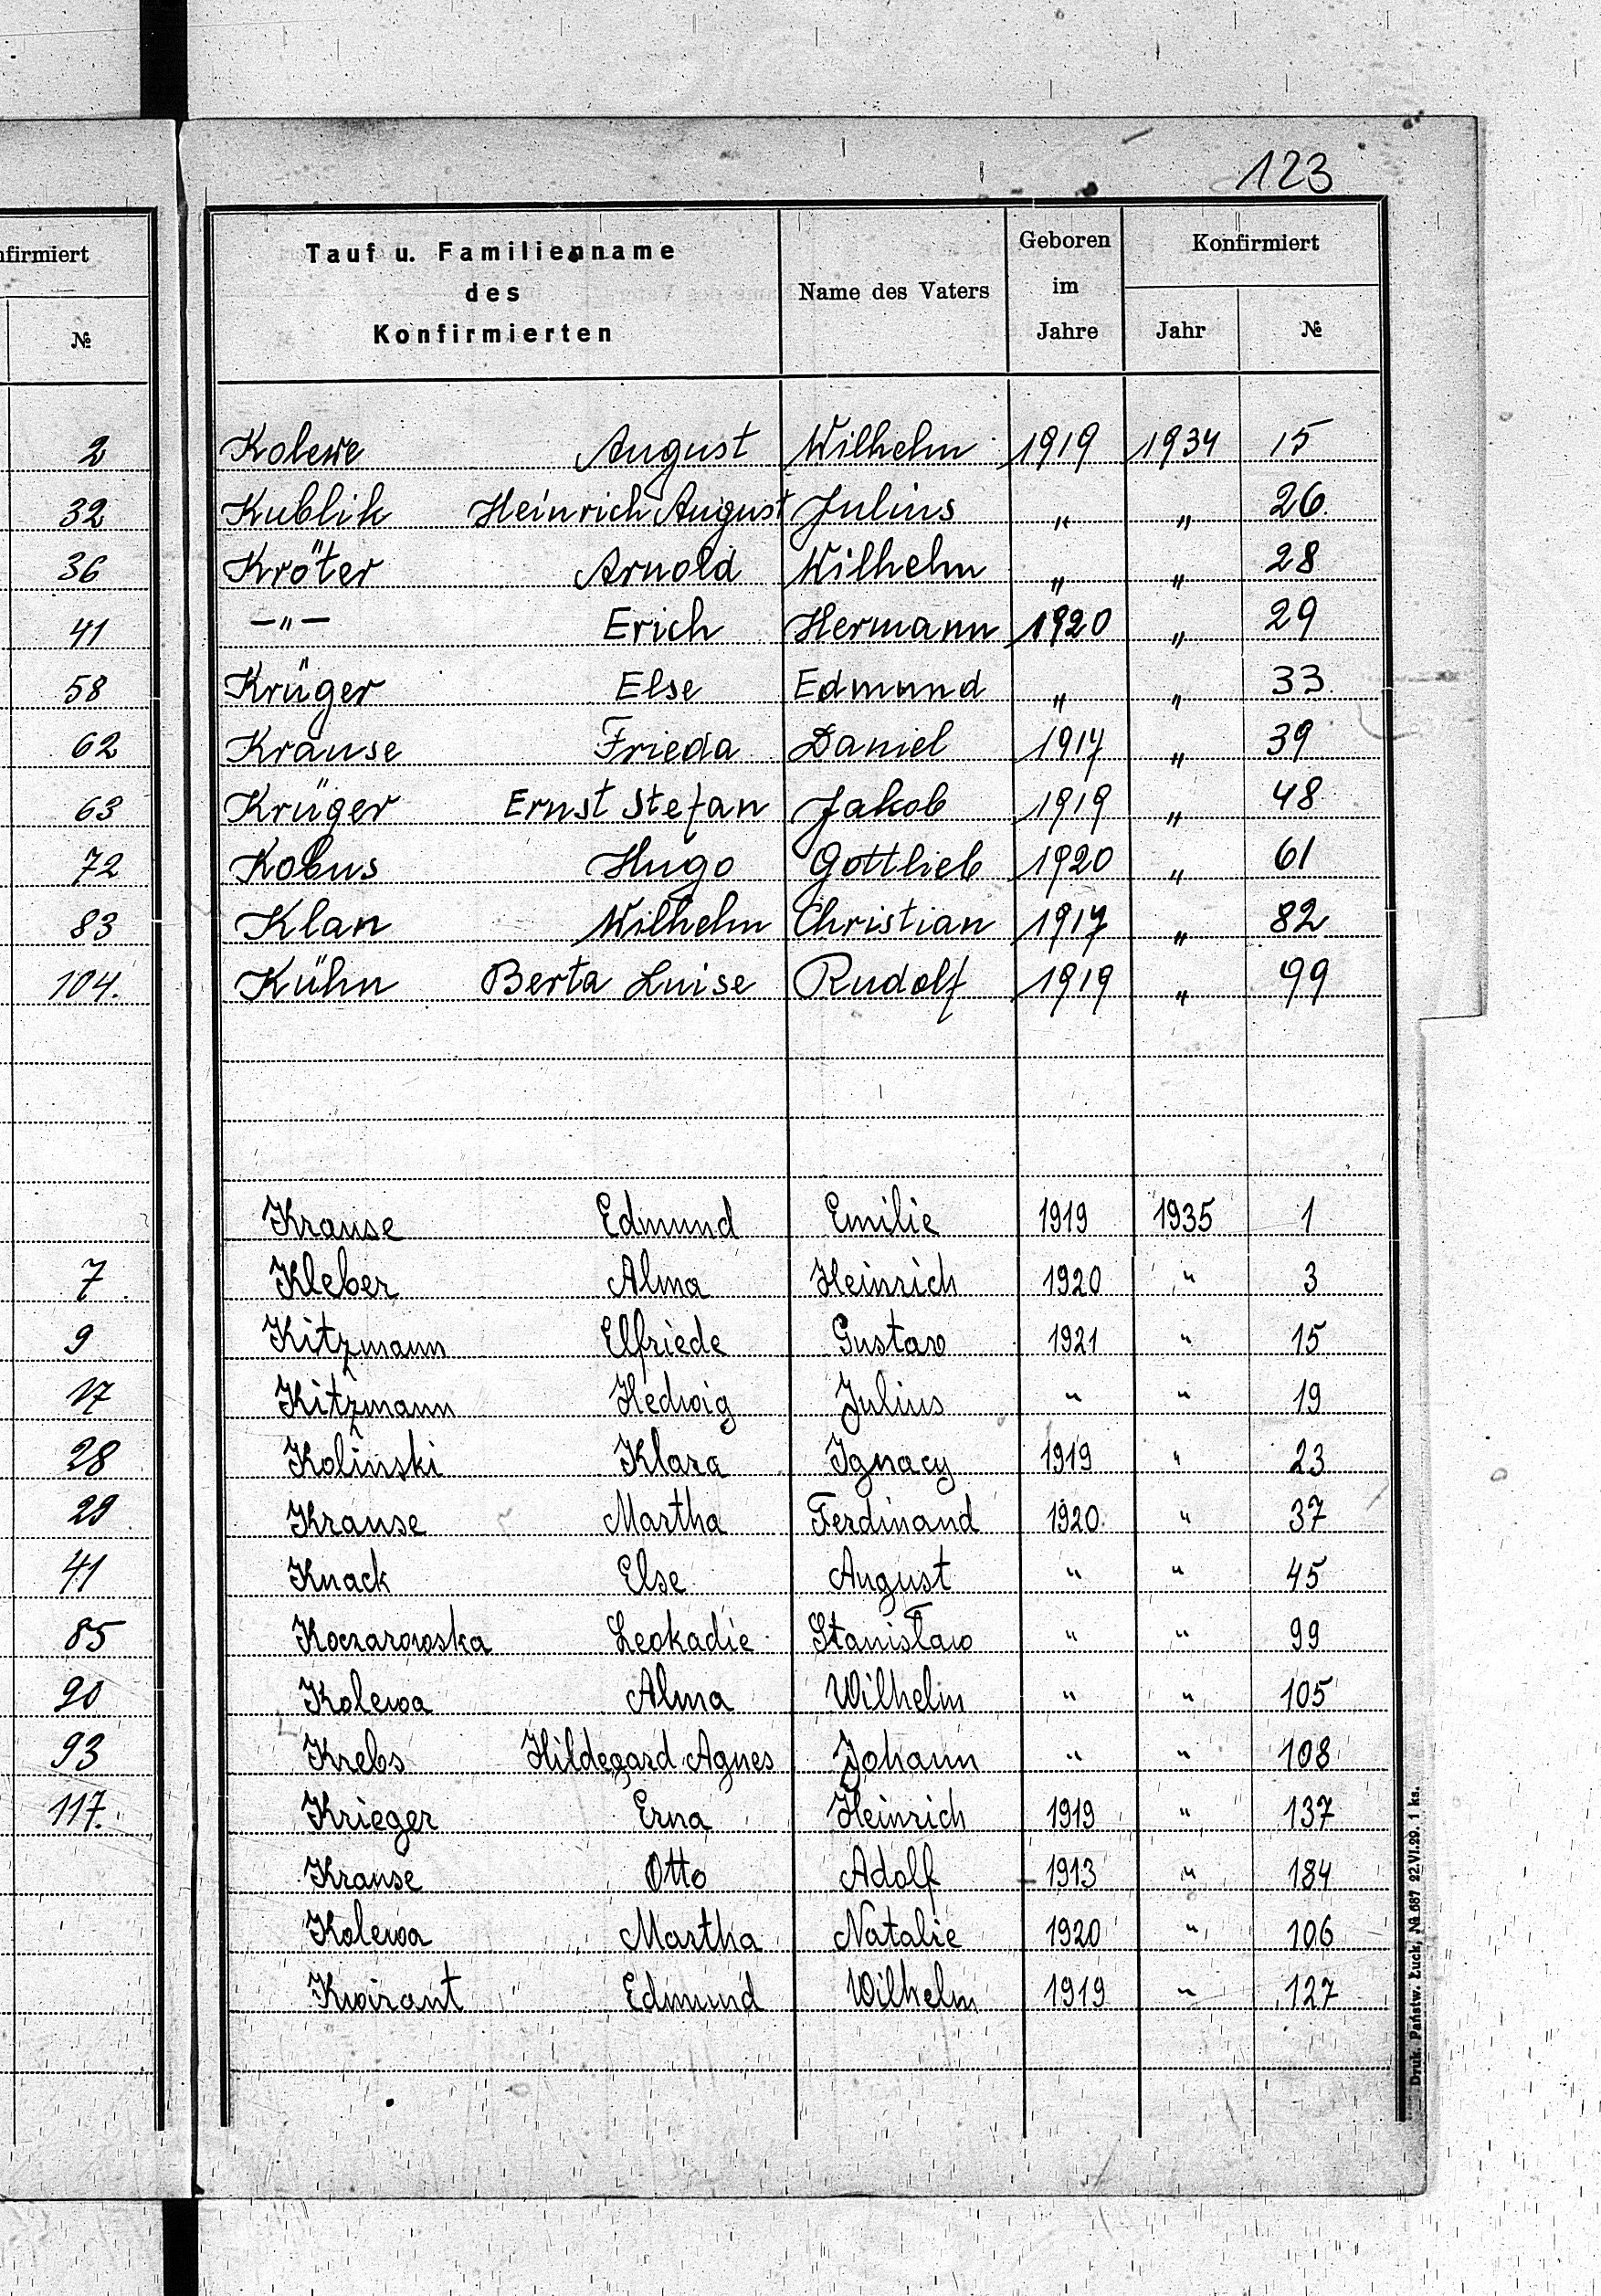 123
nfirmiert
№
2
32
36
41
58
62
63
72
83
104.
7
9
17
28
29
41
85
90
93
117.
Tauf u. Familienname
des
Konfirmierten
Name des Vaters
Geboren
im
Jahre
Konfirmiert
Jahr
№
Kolewe August Wilhelm 1919 1934 15
Kublik Heinrich August Julius " " 26
Kröter Arnold Wilhelm " " 28
—"— Erich Hermann 1920 " 29
Krüger Else Edmund " " 33
Krause Frieda Daniel 1917 " 39
Krüger Ernst Stefan Jakob 1919 " 48
Kobus Hugo Gottlieb 1920 " 61
Klan Wilhelm Christian 1917 " 82
Kühn Berta Luise Rudolf 1919 " 99
Krause Edmund Emilie 1919 1935 1
Kleber Alma Heinrich 1920 " 3
Kitzmann Elfriede Gustaw 1921 " 15
Kitzmann Hedwig Julius " " 19
Kolinski Klara Ignacy 1919 " 23
Krause Martha Ferdinand 1920 " 37
Knack Else August " " 45
Koczarowska Leokadie Stanisław " " 99
Kolewa Alma Wilhelm " " 105
Krebs Hildegard Agnes Johann " " 108
Krieger Erna Heinrich 1919 " 137
Krause Otto Adolf 1913 " 184
Kolewa Martha Natalie 1920 " 106
Kwirant Edmund Wilhelm 1919 " 127
Druk. Państw. Łuck, № 687 22.VI.29. 1 ks.